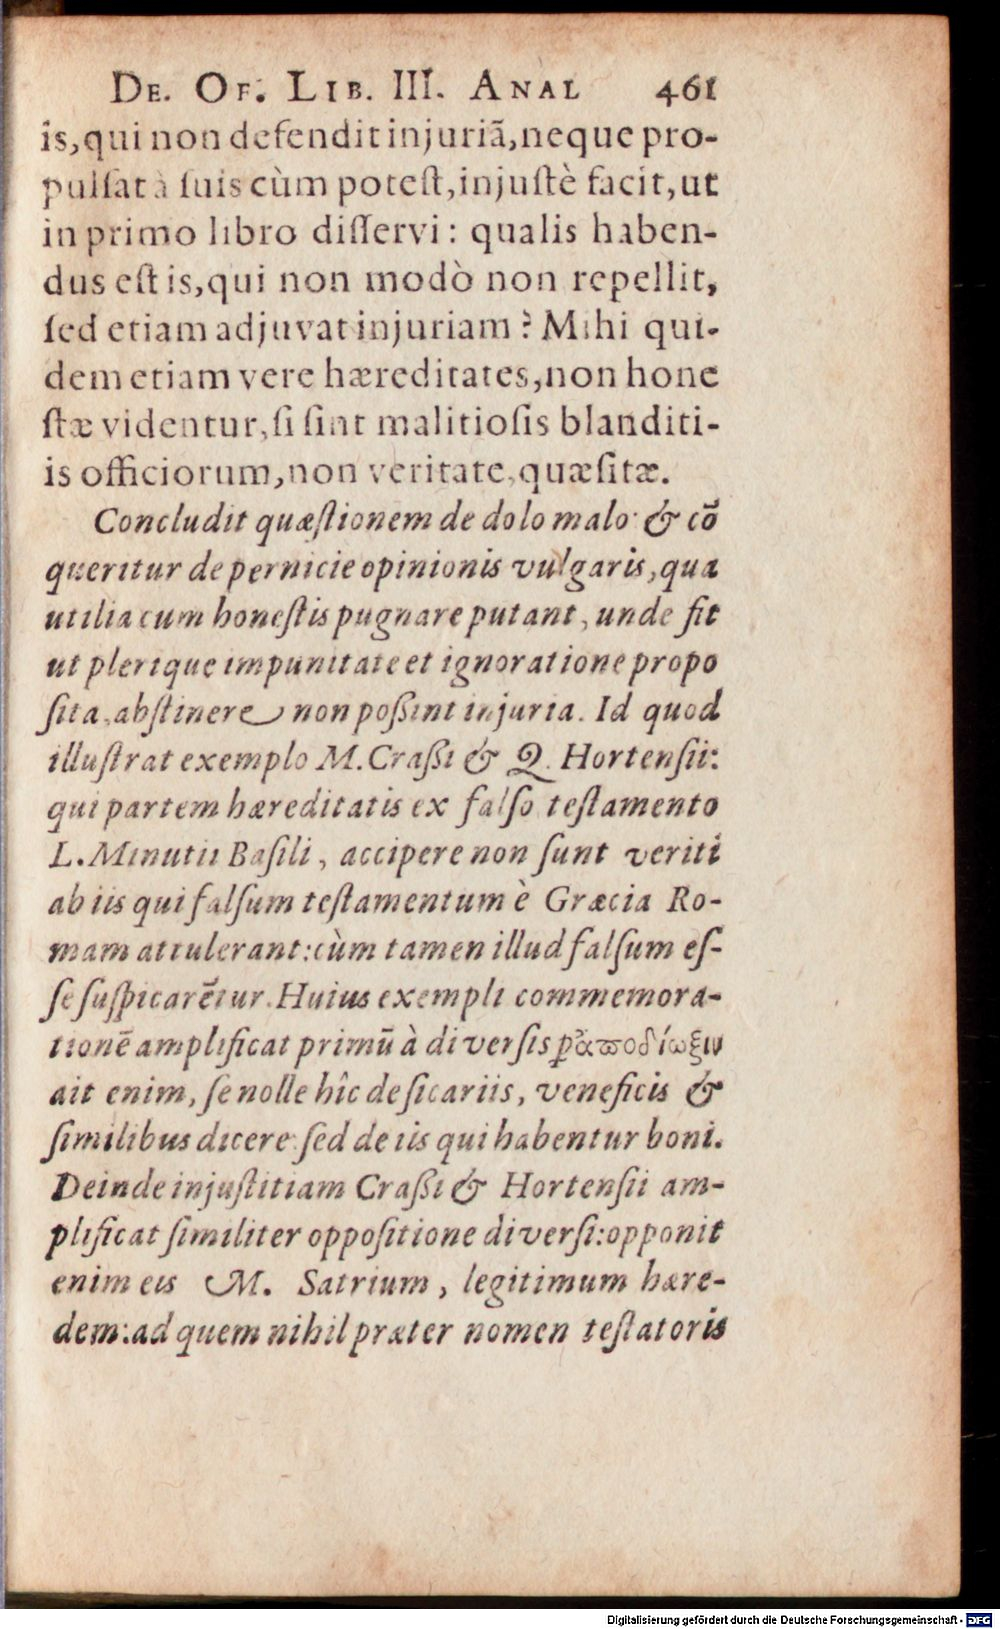 De. Of. Lib. III. Anal 461
is,qui non defendit injuriã,neque pro-
pulſat à ſuis cùm poteſt,injuſtè facit,ut
in primo libro diſſervi: qualis haben-
dus eſt is,qui non modò non repellit,
ſed etiam adjuvat injuriam? Mihi qui-
dem etiam vere hæreditates,non hone
ſtæ videntur,ſi ſint malitioſis blanditi-
is officiorum,non veritate,quæſitæ.
Concludit quæſtionem de dolo malo & cõ
queritur de pernicie opinionis vulgaris,qua
utilia cum honeſtis pugnare putant, unde fit
ut plerique impunitate et ignoratione propo
ſita,abſtinere non poßint injuria. Id quod
illuſtrat exemplo M.Craßi & Q. Hortenſii:
qui partem hæreditatis ex falſo teſtamento
L.Minutii Baſili, accipere non ſunt veriti
ab iis qui falſum teſtamentum è Græcia Ro-
mam attulerant:cùm tamen illud falſum eſ-
ſe ſuſpicarẽtur. Huius exempli commemora-
tionẽ amplificat primũ à diverſis
ait enim, ſe nolle hîc de ſicariis, veneficis &
ſimilibus dicere:ſed de iis qui habentur boni.
Deinde injuſtitiam Craßi & Hortenſii am-
plificat ſimiliter oppoſitione diverſi:opponit
enim eis M. Satrium, legitimum hære-
dem:ad quem nihil præter nomen teſtatoris
Digitalisierung gefördert durch die Deutsche Forschungsgemeinschaft - DFG